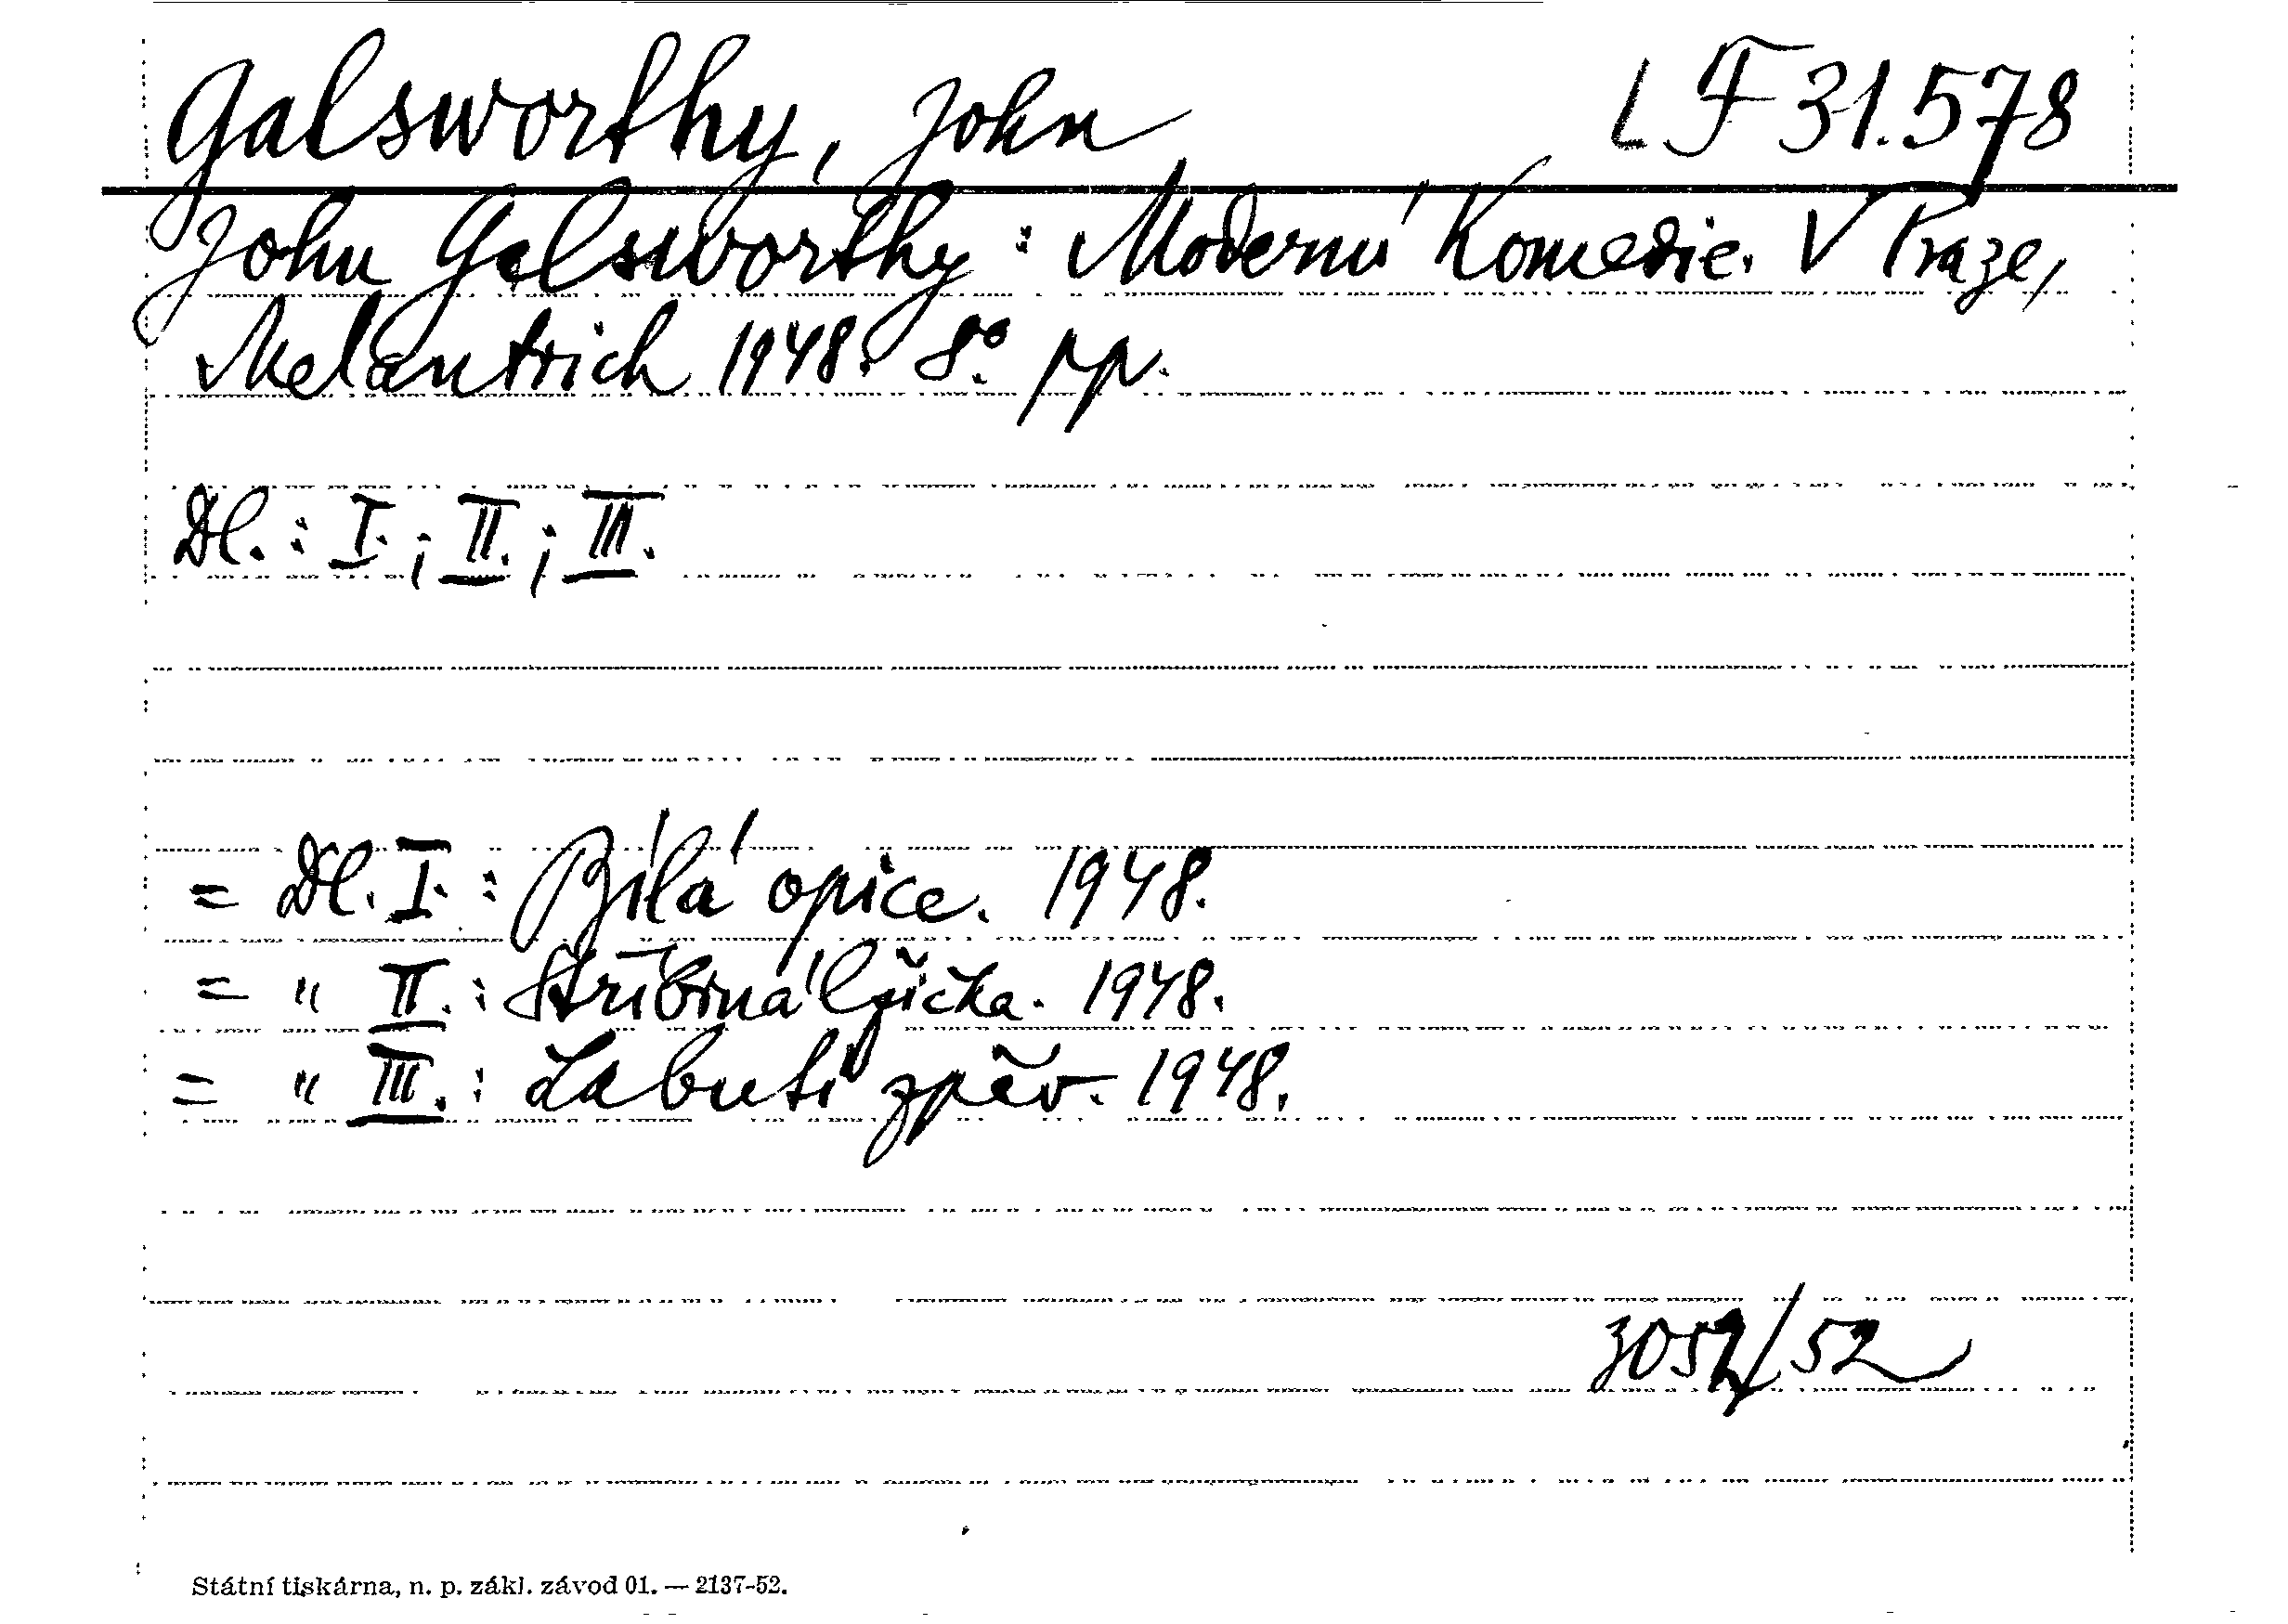 Galsworthy, John L F 31.578
John Galsworthy: Moderní Komedie. V Praze,
Melantrich 1948. 8°. pp.
Dl.: I.; II.; III.
= Dl. I.: Bílá opice. 1948.
= " II.: Stříbrná lžička. 1948.
= " III.: Labutí zpěv. 1948.
3052/52
Státní tiskárna, n. p. zákl. závod 01. — 2137-52.